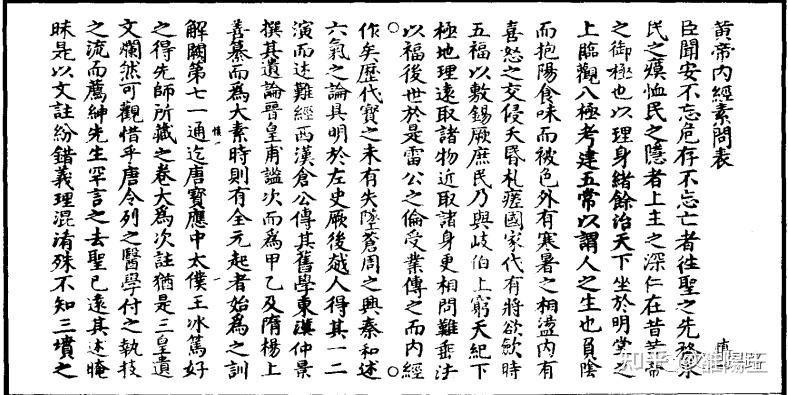 黄帝内經素問表
臣聞安不忘危存不忘亡者徃聖之先務求
民之瘼恤民之隱者上主之深仁在昔黄帝
之御極也以理身緒餘治天下坐於明堂之
上臨觀八極考建五常以謂人之生也負陰
而抱陽食味而被色外有寒暑之相盪内有
喜怒之交侵夭昏札瘥國家代有將欲歛時
五福以敷錫厥庶民乃與歧伯上窮天紀下
極地理遠取諸物近取諸身更相問難垂法
以福後世於是雷公之倫受業傳之而内經
作矣歴代寳之未有失墜蒼周之興秦和述
六氣之論具明於左史厥後越人得其一二
演而述難經西漢倉公傳其舊學東漢仲景
撰其遺論晉皇甫謐次而為甲乙及隋楊上
善纂而為大素時則有全元起者始為之訓
解闕第七一通迄唐寳應中太僕王冰篤好
之得先師所藏之卷大為次註猶是三皇遺
文爛然可觀惜乎唐令列之醫學付之執技
之流而薦紳先生罕言之去聖已遠其述晻
昧是以文註紛錯義理混淆殊不知三墳之
知乎